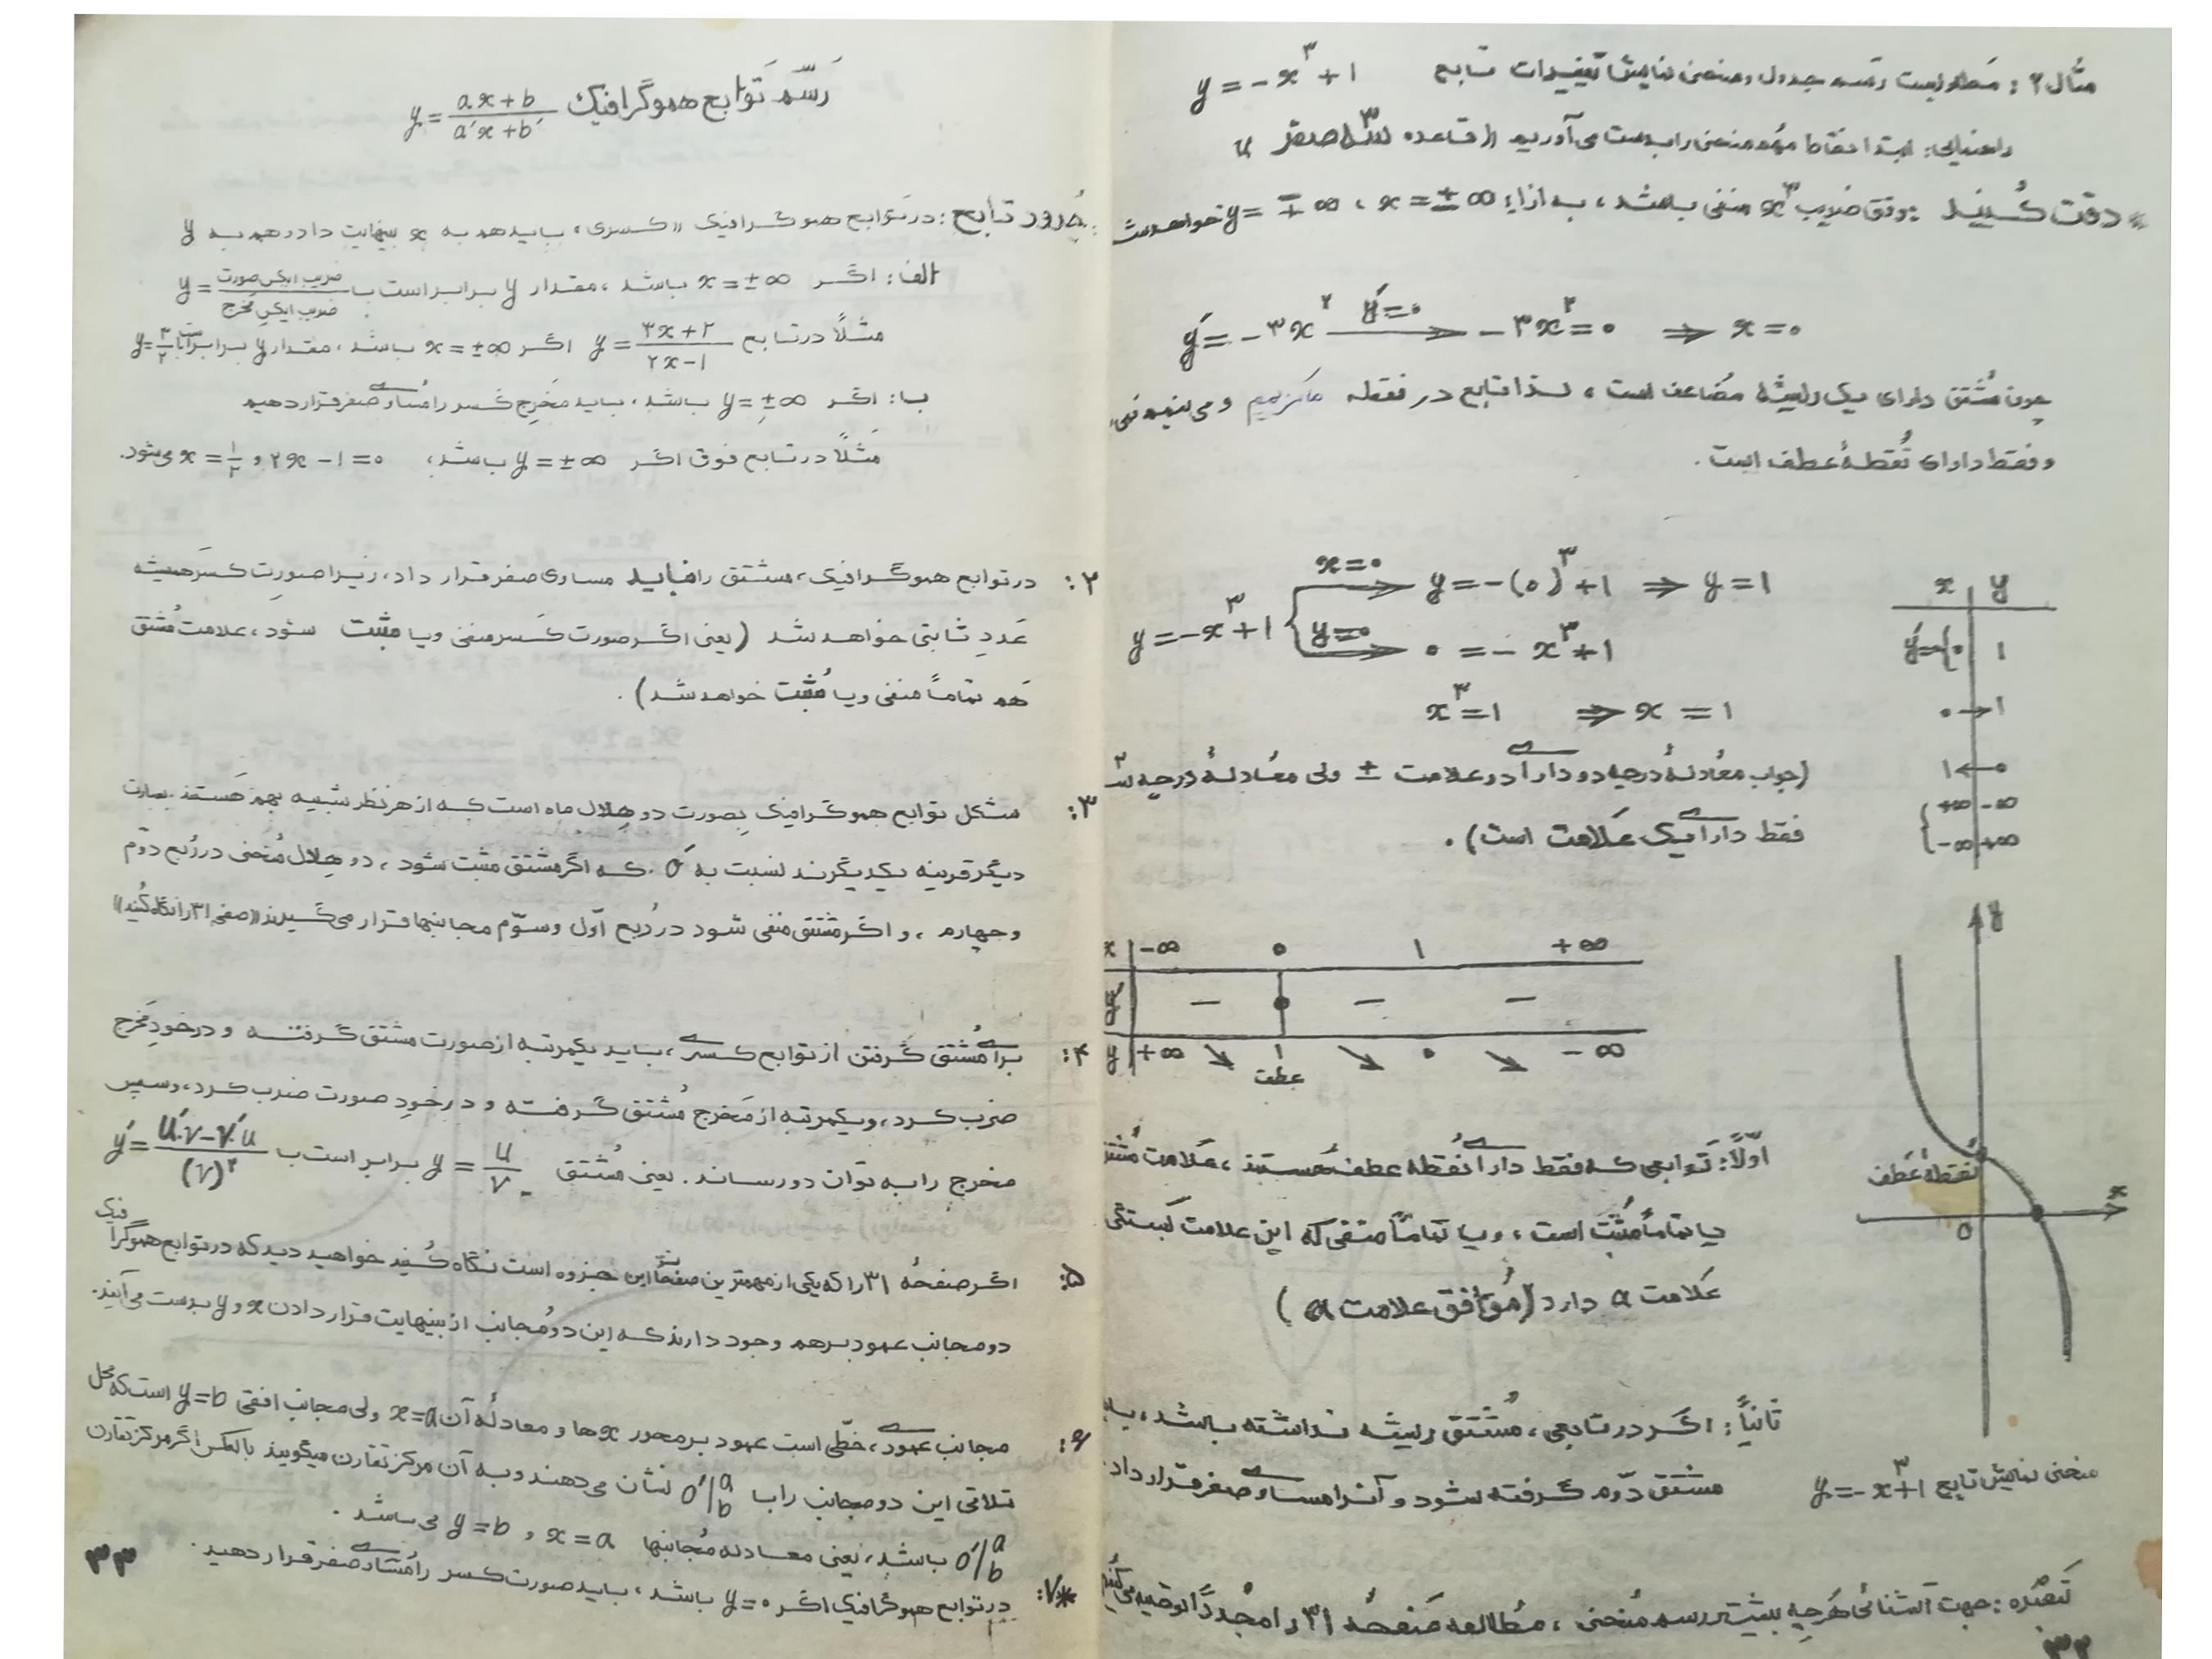 مثال ۲: مطلوبست رسم جدول و منحنی نمایش تغییرات تابع y = -x³ + ۱
راهنمایی: ابتدا نقاط مهم منحنی را بدست می‌آوریم ((قاعده ۳ صفر))
دقت کنید: وقتی ضریب x³ منفی باشد، به ازاء x = ±∞ ، y = ∓∞ خواهد شد
y' = -۳x² y'=۰ → -۳x² = ۰ ⇒ x = ۰
چون مُشتق دارای یک ریشهٔ مضاعف است، لذا تابع در نقطه ماکزیمم و می‌نیمم نمی
و فقط دارای نُقطهٔ عطف است.
y = -x³ + ۱ { x=۰ → y = -(۰)³ + ۱ ⇒ y = ۱
y=۰ → ۰ = -x³ + ۱
x³ = ۱ ⇒ x = ۱
(جواب معادلهٔ درجه دو دارای دو علامت ± ولی معادلهٔ درجه ۳
فقط دارای یک علامت است).
x | y
y'={۰ | ۱
۰ → ۱
۱ ← ۰
+∞ | -∞
-∞ | +∞
x | -∞ ۰ ۱ +∞
y' | - ۰ - -
y | +∞ ↘ ۱ ↘ ۰ ↘ -∞
عطف
y
نقطهٔ عطف
x
o
اوّلاً: توابعی که فقط دارای نُقطهٔ عطف هستند، علامت مُشتق
یا تماماً مُثبت است، و یا تماماً منفی که این علامت بستگی
علامت a دارد (مُوافق علامت a)
ثانیاً: اگر در تابعی، مُشتق ریشه نداشته باشد، باید
مشتق دوّم گرفته شود و آنرا مساوی صفر قرار داد.
منحنی نمایش تابع y = -x³ + ۱
تبصره: جهت آشنائی هرچه بیشتر رسم مُنحنی، مُطالعه صَفحهٔ ۳۱ را مجُدداً توصیه می‌کنیم
۳۲
رسم توابع هموگرافیک y = (ax+b)/(a'x+b')
در توابع هموگرافیک ((کسری))، باید هم به x بینهایت داد و هم به y
الف: اگر x = ±∞ باشد، مقدار y برابر است با y = ضریب ایکس صورت / ضریب ایکس مخرج
مثلاً در تابع y = (۳x+۲)/(۲x-۱) اگر x = ±∞ باشد، مقدار y برابر است با y = ۳/۲
ب: اگر y = ±∞ باشد، باید مَخرج کسر را مُساوی صفر قرار دهیم
مثلاً در تابع فوق اگر y = ±∞ باشد، ۲x - ۱ = ۰ و x = ۱/۲ می‌شود.
۲: در توابع هموگرافیک، مشتق را نباید مساوی صفر قرار داد، زیرا صورت کسر همیشه
عَددِ ثابتی خواهد شد (یعنی اگر صورت کَسر منفی و یا مثبت شود، علامت مُشتق
هَم تماماً منفی و یا مُثبت خواهد شد).
۳: شکل توابع هموگرافیک بصورت دو هِلال ماه است که از هر نظر شبیه بهم هَستند بعبارت
دیگر قرینه یکدیگرند نسبت به o'. که اگر مشتق مثبت شود، دو هِلال مُنحنی در رُبع دوّم
و چهارم، و اگر مشتق منفی شود در رُبع اوّل و سوّم مجانبها قرار می‌گیرند ((صفحه ۳۱ را نگاه کُنید))
۴: برای مُشتق گرفتن از توابع کسری، باید یکمرتبه از صورت مشتق گرفته و در خودِ مَخرج
ضرب کرد، و یکمرتبه از مَخرج مُشتق گرفته و در خودِ صورت ضرب کرد، و سپس
مخرج را به توان دو رساند. یعنی مُشتق y = u/v برابر است با y' = (u'.v - v'.u)/(v)²
۵: اگر صفحهٔ ۳۱ را که یکی از مهمترین صفحات این جزوه است نگاه کُنید خواهید دید که در توابع هموگرافیک
دو مجانب عمود برهم وجود دارند که این دو مُجانب از بینهایت قرار دادن x و y بدست می‌آیند.
۶: مجانب عمودی، خطّی است عمود بر محور xها و معادلهٔ آن x=a ولی مجانب افقی y=b است که محل
تلاقی این دو مجانب را با o'|a b نشان می‌دهند و به آن مرکز تقارن میگویند بالعکس اگر مرکز تقارن
o'|a b باشد، یعنی معادله مُجانبها x=a و y=b می‌باشد.
*۷: در توابع هموگرافیک اگر y=۰ باشد، باید صورت کسر را مُساوی صفر قرار دهید.
۳۳